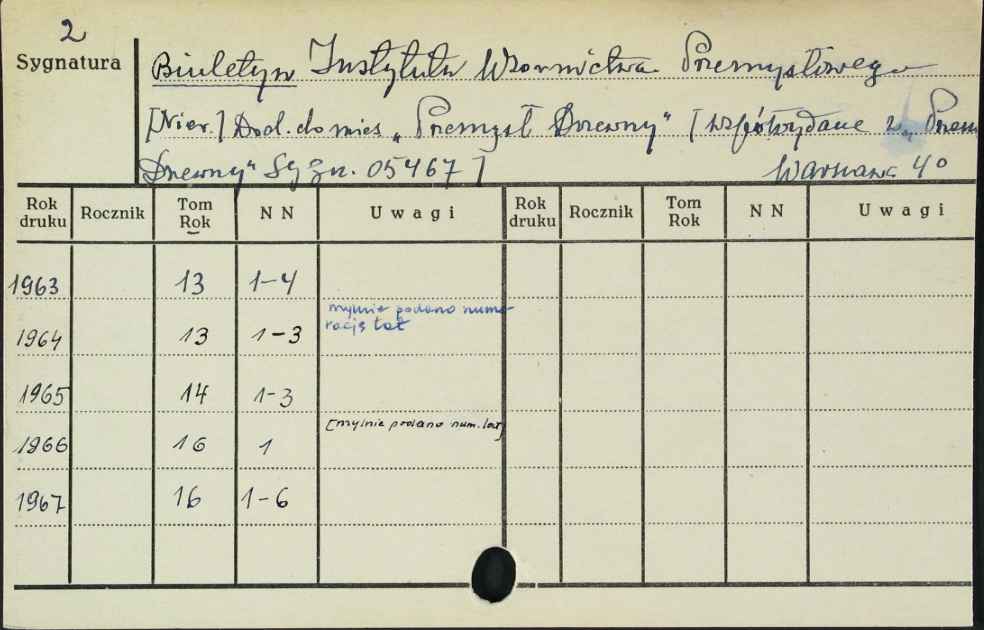 2
Sygnatura
Biuletyn Instytutu Wzornictwa Przemysłowego
[Nier.] Dod. do mies „Przemysł Drzewny" [Współwydane z „Przem
Drzewny" Sygn. 05467] Warszawa 4°
Rok druku Rocznik Tom Rok N N Uwagi Rok druku Rocznik Tom Rok N N Uwagi
1963 13 1-4
mylnie podano nume-
racje lat
1964 13 1-3
1965 14 1-3
[mylnie podano num. lat]
1966 16 1
1967 16 1-6